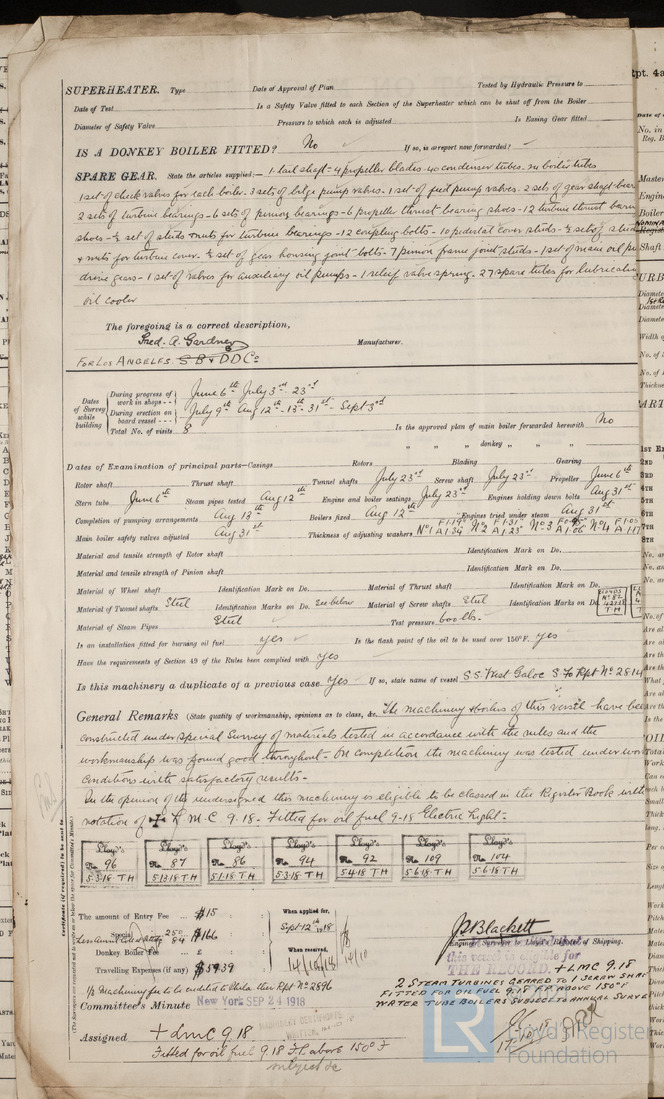 SUPERHEATER. Type Date of Approval of Plan Tested by Hydraulic Pressure to
Date of Test Is a Safety Valve fitted to each Section of the Superheater which can be shut off from the Boiler
Diameter of Safety Valve Pressure to which each is adjusted Is Easing Gear fitted
IS A DONKEY BOILER FITTED? No If so, is a report now forwarded?
SPARE GEAR. State the articles supplied:— 1 tail shaft - 4 propeller blades - 40 condenser tubes. 24 boiler tubes
1 set of check valves for each boiler. 3 sets of bilge pump valves. 1 set of feed pump valves. 2 sets of gear shaft bear
2 sets of turbine bearings - 6 sets of pinion bearings - 6 propeller thrust bearing shoes - 12 turbine thrust bearin
shoes - ½ set of studs & nuts for turbine bearings - 12 coupling bolts - 10 pedestal cover studs - ½ set of stud
& nuts for turbine cover. ½ set of gear housing joint bolts - 7 pinion frame joint studs - 1 set of main oil pu
drive gears - 1 set of valves for auxiliary oil pumps - 1 relief valve spring. 27 spare tubes for lubricatin
oil cooler
The foregoing is a correct description,
Fred. A. Gardner Manufacturer.
FOR LOS ANGELES S B & D D Co
Dates of Survey while building
During progress of work in shops - - June 6th July 3rd - 23rd
During erection on board vessel - - - July 9th Aug 12th - 13th - 31st - Sept 3rd
Total No. of visits 8 Is the approved plan of main boiler forwarded herewith No
" " " donkey " " "
Dates of Examination of principal parts—Casings Rotors Blading Gearing
Rotor shaft Thrust shaft Tunnel shafts July 23rd Screw shaft July 23rd Propeller June 6th
Stern tube June 6th Steam pipes tested Aug 12th Engine and boiler seatings July 23rd Engines holding down bolts Aug 31st
Completion of pumping arrangements Aug 13th Boilers fixed Aug 12th Engines tried under steam Aug 31st
Main boiler safety valves adjusted Aug 31st Thickness of adjusting washers No 1 F 1.19 A 1.34 No 2 F 1.31 A 1.23 No 3 A 1.06 No 4
Material and tensile strength of Rotor shaft Identification Mark on Do.
Material and tensile strength of Pinion shaft Identification Mark on Do.
Material of Wheel shaft Identification Mark on Do. Material of Thrust shaft Identification Mark on Do.
Material of Tunnel shafts Steel Identification Marks on Do. See below Material of Screw shafts Steel Identification Marks on Do. LLOYDS No 82 TH
Material of Steam Pipes Steel Test pressure 600 lbs.
Is an installation fitted for burning oil fuel yes Is the flash point of the oil to be used over 150°F. yes
Have the requirements of Section 49 of the Rules been complied with yes
Is this machinery a duplicate of a previous case Yes If so, state name of vessel S.S. West Galoc S Fo Rpt No 2814
General Remarks (State quality of workmanship, opinions as to class, &c. The machinery & boilers of this vessel have bee
constructed under Special Survey of materials tested in accordance with the rules and the
workmanship was found good throughout - On completion the machinery was tested under wor
conditions with satisfactory results -
In the opinion of the undersigned this machinery is eligible to be classed in the Register Book with
notation of L M C 9.18 - Fitted for oil fuel 9-18 Electric Light -
Lloyd's No 96 5·3·18 T H
Lloyd's No 87 5·13·18 T H
Lloyd's No 86 5·1·18 T H
Lloyd's No 94 5·3·18 T H
Lloyd's No 92 5·4·18 T H
Lloyd's No 109 5·6·18 T H
Lloyd's No 104 5·6·18 T H
The amount of Entry Fee ... $15 When applied for, Sept 12th 1918
Special $166
Donkey Boiler Fee ... £ When received,
Travelling Expenses (if any) $59.39
½ Machinery fee to be credited to Phila ther Rpt No 2896
J. Blackett
Engineer Surveyor to Lloyd's Register of Shipping.
this vessel is eligible for
THE RECORD. + LMC 9.18
2 STEAM TURBINES GEARED TO 1 SCREW SHAF
FITTED FOR OIL FUEL 9.18 F.P. ABOVE 150°F
WATER TUBE BOILERS SUBJECT TO ANNUAL SURVE
Committee's Minute New York SEP 24 1918
Assigned + LMC 9.18
Fitted for oil fuel 9.18 F.P. above 150°F
subject &c
Lloyd's Register
Foundation